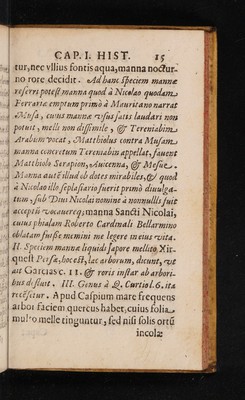 CAP. I. HIST. 15
tur, nec vllius fontis aqua, manna noctur-
no rore decidit. Ad hanc speciem mannæ
referri potest manna quod à Nicolao quodam
Ferrariæ emptum primò à Mauritano narrat
Musa, cuius mannæ vsus satis laudari non
potuit, melli non dissimile, & Tereniabin
Arabum vocat, Matthiolus contra Musam
manna concretum Tereniabin appellat, fauent
Matthiolo Serapion, Auicenna, & Mesue.
Manna aut illud ob dotes mirabiles, & quod
à Nicolao illo seplasiario fuerit primò diuulga-
tum, sub Diui Nicolai nomine à nonnullis fuit
acceptū vocatumq; manna Sancti Nicolai,
cuius phialam Roberto Cardinali Bellarmino
oblatam fuisse memini me legere in eius vita.
II. Speciem mannæ liquidi sapore mellito, Xir-
quest Persæ, hoc est, lac arborum, dicunt, vt
ait Garcias c. 11. & roris instar ab arbori-
bus defluit. III. Genus à Q. Curtio l. 6. ita
recēsitur. Apud Caspium mare frequens
arbor faciem quercus habet, cuius folia
multo melle tinguntur, sed nisi solis ortū
incolæ